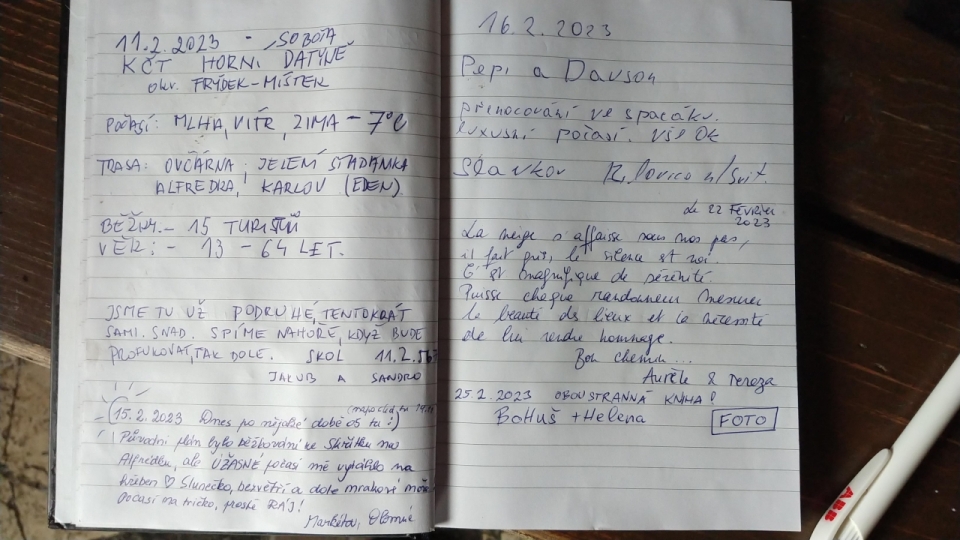 11.2.2023 - SOBOTA
KČT HORNÍ DATYNĚ
okr. FRÝDEK-MÍSTEK
POČASÍ: MLHA, VÍTR, ZIMA - 7°C
TRASA: OVČÁRNA, JELENÍ STUDÁNKA
ALFREDKA, KARLOV (EDEN)
BĚŽKY.- 15 TURISTŮ
VĚK: - 13 - 64 LET.
JSME TU UŽ PODRUHÉ, TENTOKRÁT
SAMI. SNAD. SPÍME NAHOŘE, KDYŽ BUDE
PROFUKOVAT, TAK DOLE. SKOL 11.2.
JAKUB A SANDRO
15.2.2023 Dnes po nějaké době os tu :)
Původní plán bylo běžkování ke Skřítku na
Alfredku, ale ÚŽASNÉ počasí mě vytáhlo na
hřeben ♡ Slunečko, bezvětří a dole mrakové moře
Počasí na tričko, prostě RÁJ!
Markéta, Olomouc
16.2.2023
Pepi a Davson
přenocování ve spacáku.
luxusní počasí. Vše OK
Slavkov
Le 22 FÉVRIER
2023
La neige s'affaisse sous nos pas,
il fait gris, le silence est roi.
C'est magnifique de sérénité.
Puisse chaque randonneur mesurer
la beauté des lieux et la nécessité
de lui rendre hommage.
Bon chemin...
Aurèle & Tereza
25.2.2023 OBOUSTRANNÁ KNIHA!
Bohuš + Helena
FOTO
ABB